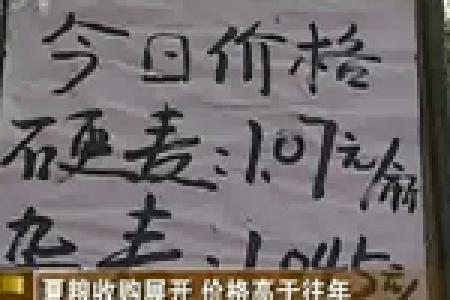 今日价格
硬麦:1.07元/斤
杂麦:1.045元/
夏粮收购展开 价格高于往年